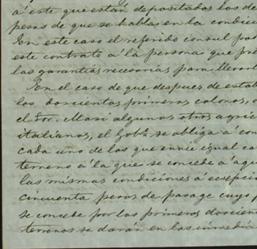 á este que están depositados los de
pesos de que se habla en la condici
En este caso el referido consul pod
este contrato á la persona que pre
las garantías necesarias para llevarl
En el caso de que despues de estab
los doscientos primeros colonos, 
el Sor. Masi algunos otros agric
italianos, el Gobo. se obliga á con
cada uno de los que envie igual can
terreno á la que se concede á aqu
las mismas condiciones á escepcion
cincuenta pesos de pasage cuyo p
se concede por los primeros doscien
terrenos se darán en las inmedia